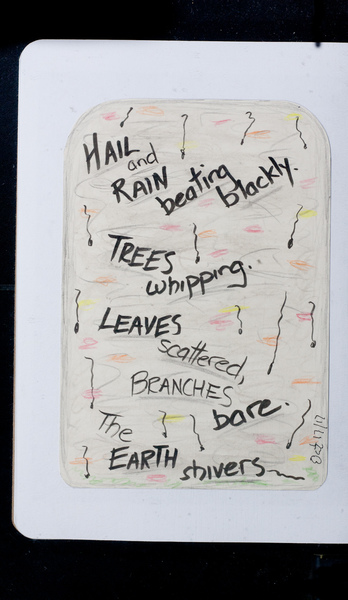 HAIL
and
RAIN beating blackly.
TREES
whipping..
LEAVES
scattered,
BRANCHES
bare.
The
EARTH shivers
Oct 17/17